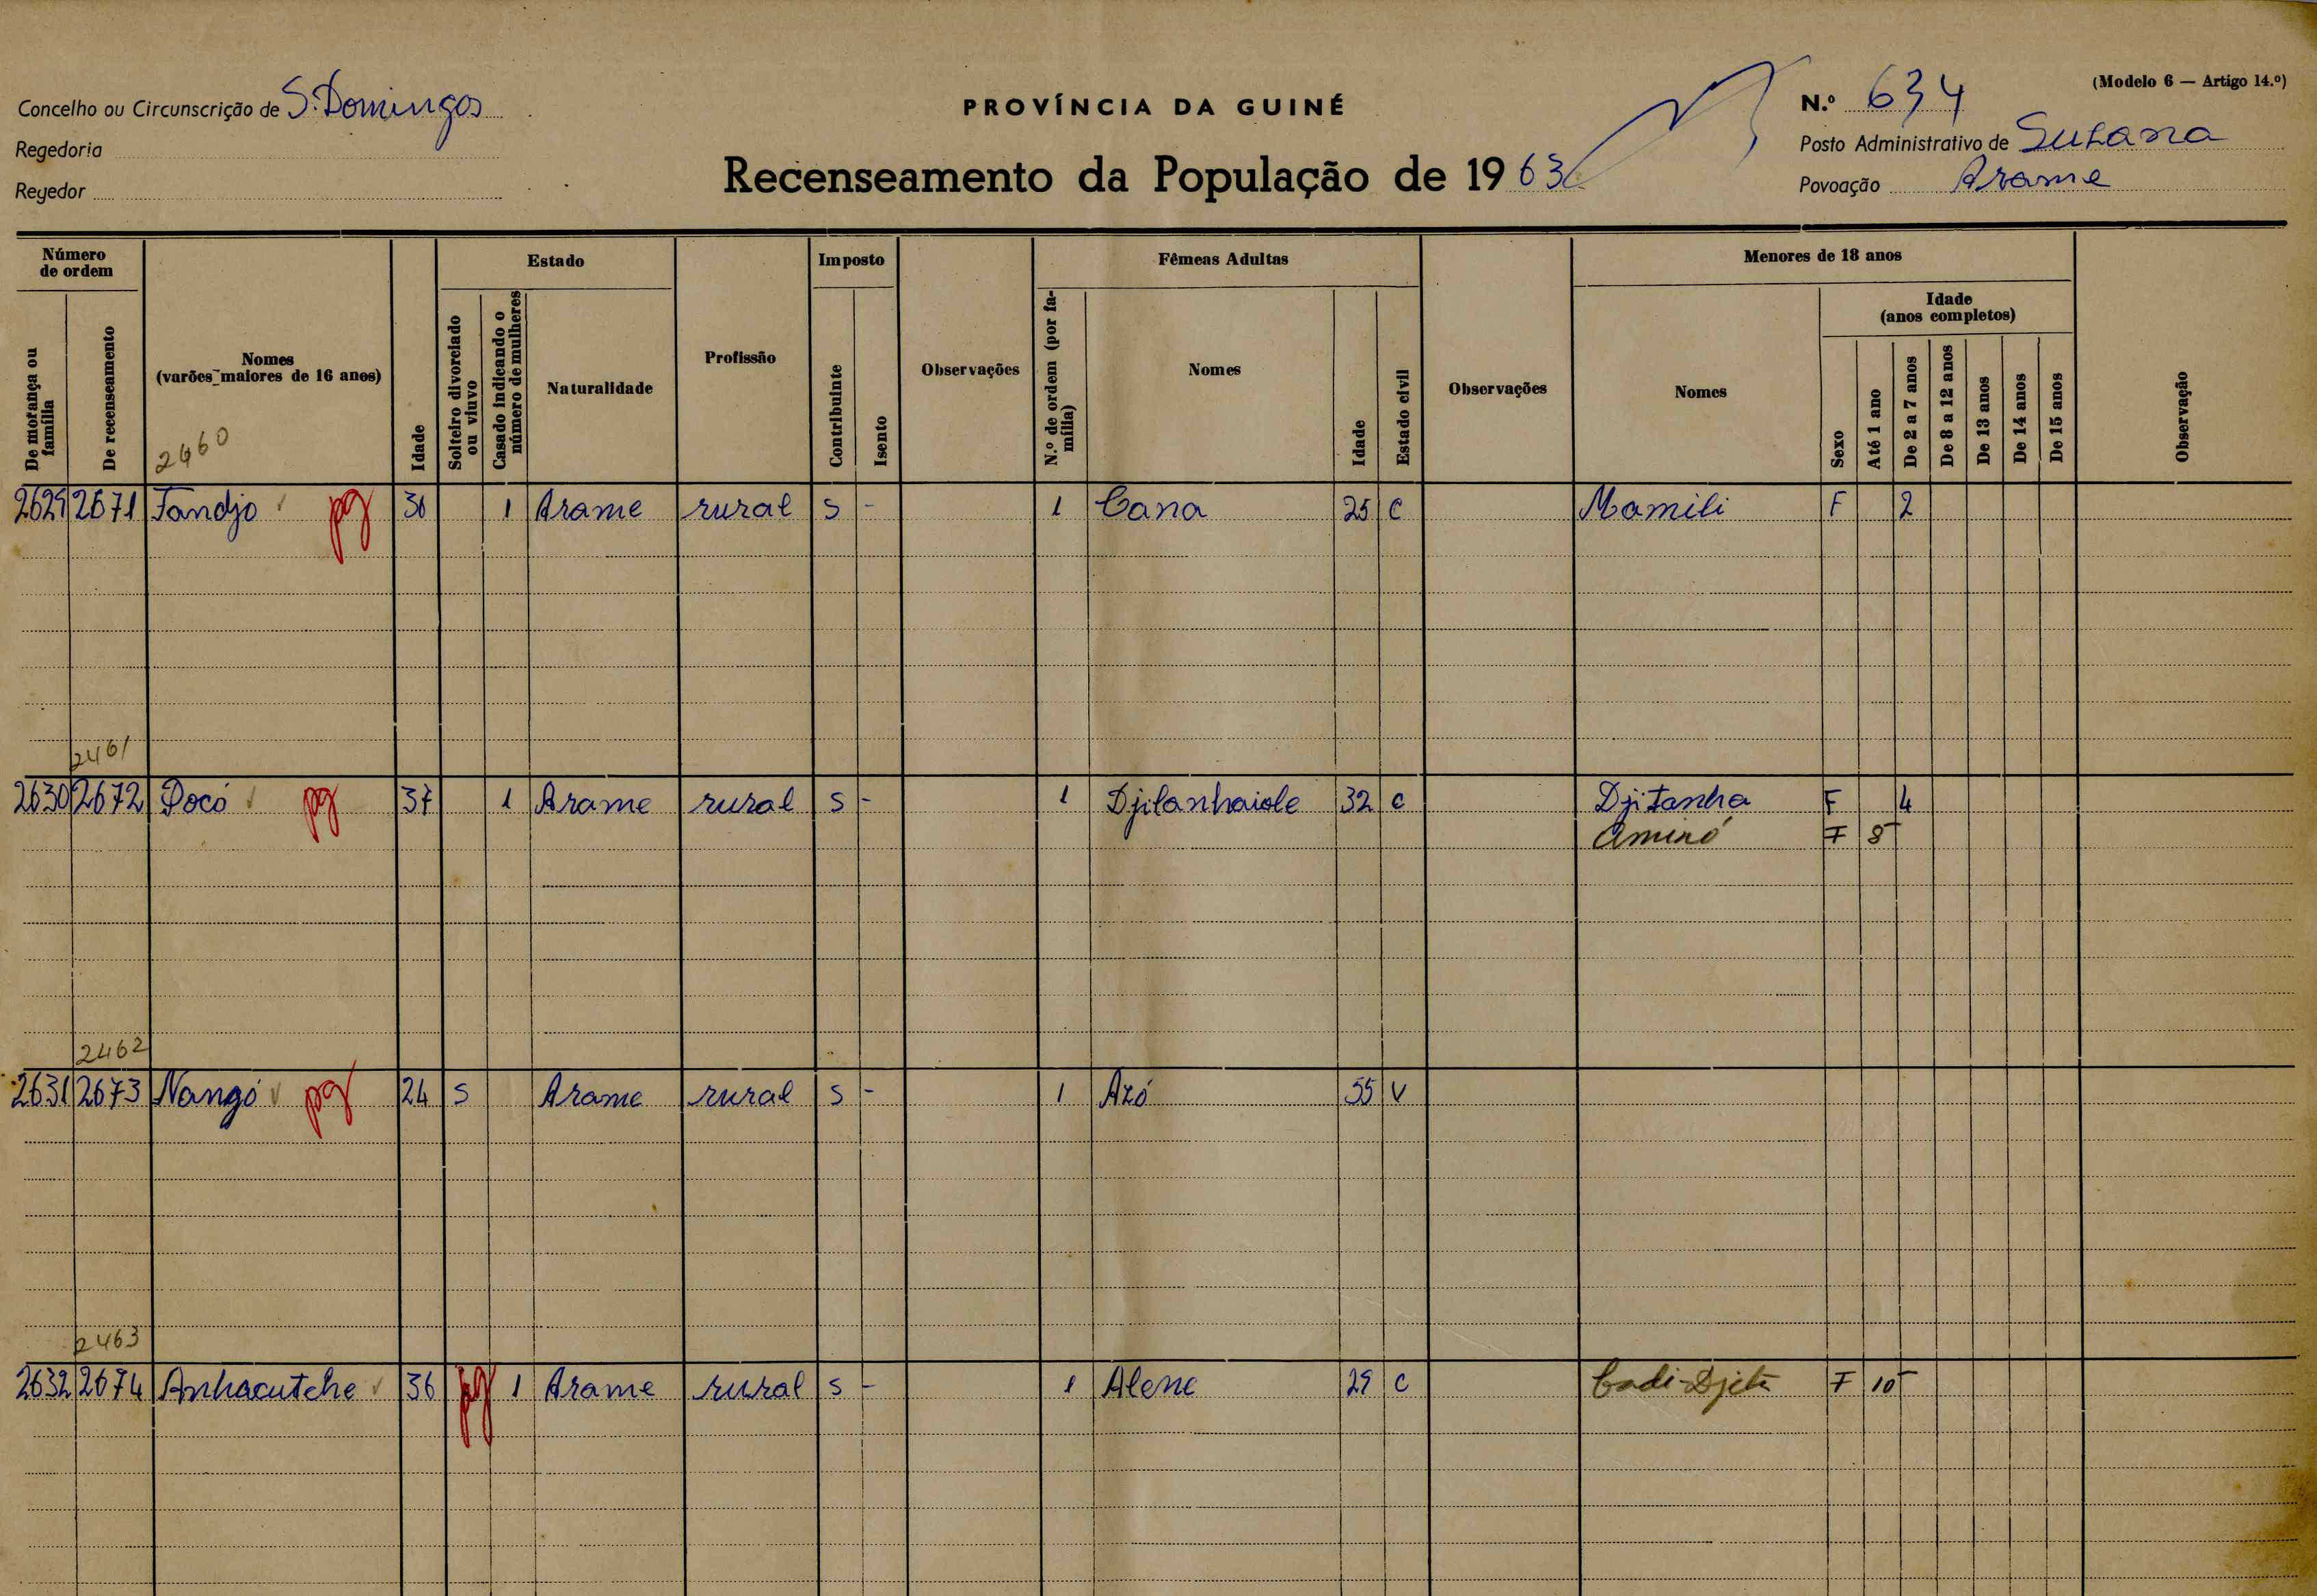 (Modelo 6 — Artigo 14.º)
Concelho ou Circunscrição de S. Domingos
PROVÍNCIA DA GUINÉ
N.º 634
Regedoria
Posto Administrativo de Suzana
Recenseamento da População de 1963
Regedor
Povoação Arame
Número de ordem
Estado
Imposto
Fêmeas Adultas
Menores de 18 anos
De morança ou família
De recenseamento
Nomes
(varões maiores de 16 anos)
Idade
Solteiro divorciado ou viuvo
Casado indicando o número de mulheres
Naturalidade
Profissão
Contribuinte
Isento
Observações
N.º de ordem (por família)
Nomes
Idade
Estado civil
Observações
Nomes
Sexo
Idade
(anos completos)
Até 1 ano
De 2 a 7 anos
De 8 a 12 anos
De 13 anos
De 14 anos
De 15 anos
Observação
2460
2629 2671 Tandjo pg 36 1 Arame rural s - 1 Cana 25 C Mamili F 2
2461
2630 2672 Pocó pg 37 1 Arame rural s - 1 Djilanhaiole 32 c Djitanha F 4
Aminó F 8
2462
2631 2673 Nangó pg 24 s Arame rural s - 1 Azó 55 V
2463
2632 2674 Anhacutche 36 pg 1 Arame rural s - 1 Alene 29 C F 10